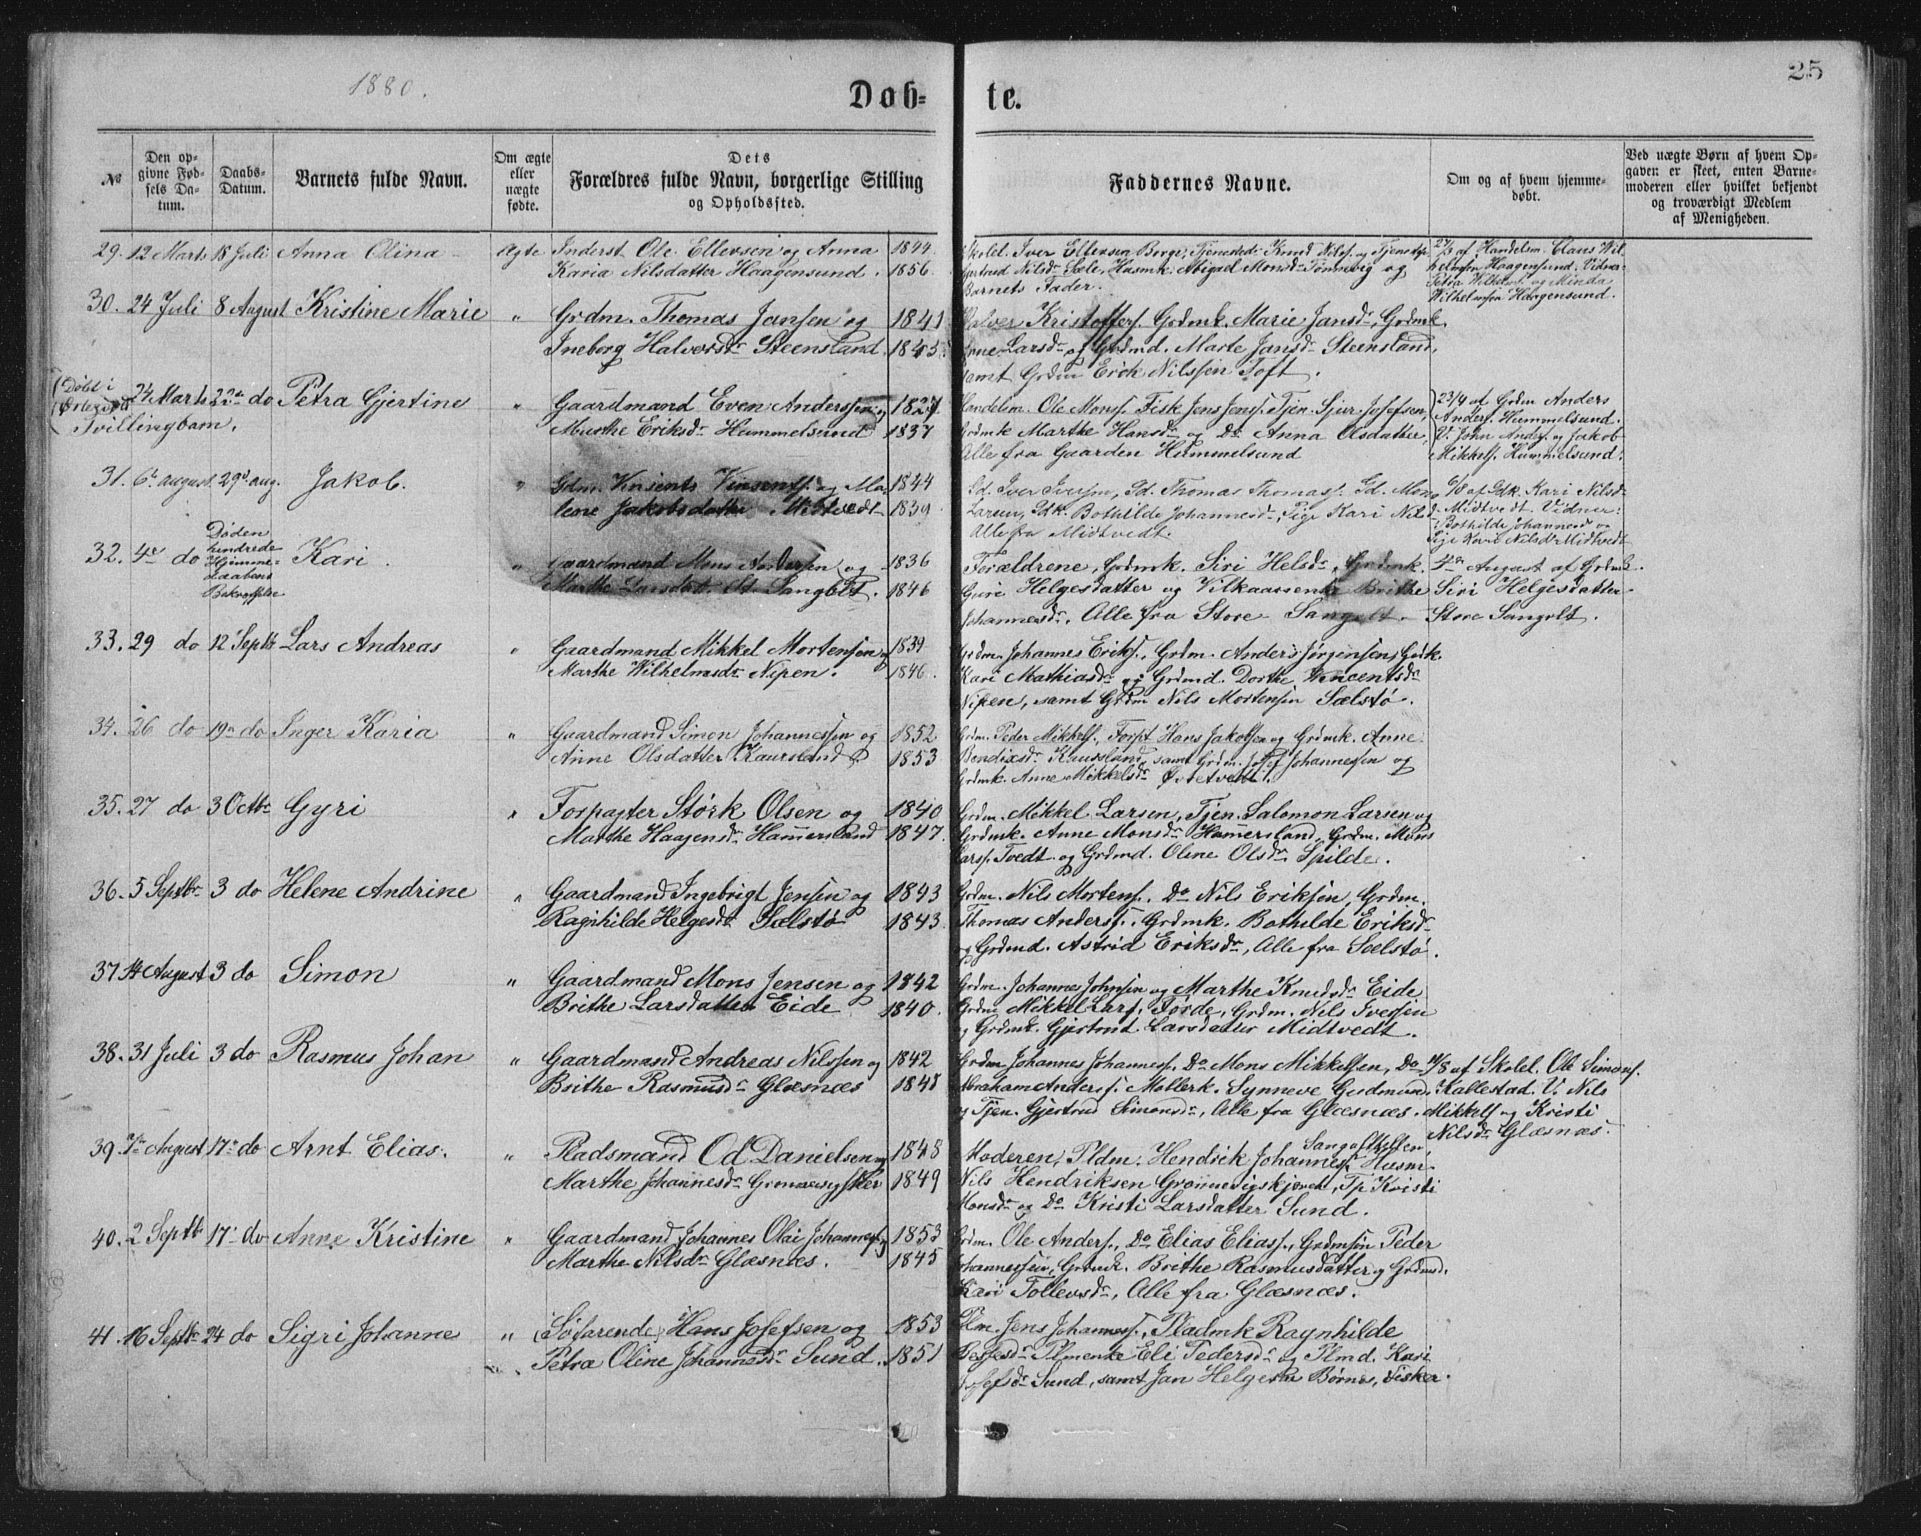 1880.
25
Døb-
te.
№
Den op-
givne Fød-
sels Da-
tum.
Daabs-
Datum.
Barnets fulde Navn.
Om ægte
eller
uægte
fødte.
Dets
Forældres fulde Navn, borgerlige Stilling
og Opholdssted.
Faddernes Navne.
Om og af hvem hjemme-
døbt.
Ved uægte Børn af hvem Op-
gaven er skeet, enten Barne-
moderen eller hvilket bekjendt
og troværdigt Medlem
af Menigheden.
29. 12 Marts 18 Juli Anna Olina Ægte Inderst Ole Ellevsen og Anna 1844
Karia Nilsdatter Haagensund. 1856
Skolel. Iver Ellevsen Borge, Knud Nils. og
Gjertrud Nilsdr Sæle, Husmk. Abigael Monsdr Tønnevig og
Barnets Fader.
27/3 af Handelsm. Claus Wil-
helmsen Haagensund. Vidner:
Petra Wilhelms. og Minda
Wilhelmsen Haagensund.
30. 24 Juli 8 August Kristine Marie " Grdm. Thomas Jansen og 1841
Ineborg Halversdr Steensland 1845
Halver Kristoffers. Grdmk. Marie Jansdr, Grdmk.
Anne Larsdr og Grdmd. Marte Jansdr Steensland,
samt Grdm Erik Nilssen Toft.
(Døbt i
24 Marts 22de do Petra Gjertine " Gaardmand Even Anderssen og 1827
Tvillingbarn. Marthe Eriksdr Hummelsund 1837
Handelm. Ole Mons. Fisk Jens Jens. Tjen. Sjur Josefsen,
Grdmk Marthe Hansdr og Do Anna Olsdatter,
Alle fra Gaarden Hummelsund
23/4 af Grdm Anders
Anders. Hummelsund.
V. John Anders. og Jakob
Mikkels. Hummelsund.
31. 6te august 29de aug. Jakob. " Gdm. Vinsents Vinsents. og Ma- 1844
lene Jakobsdatter Midtvedt 1839
Gd. Iver Iversen, Gd. Thomas Thomas. Gd. Mons
Larsen, Gdk. Bothilde Johannesdr, Pige Kari Nilsd
Alle fra Midtvedt.
6/8 af Gdk. Kari Nilsdr
Midtvedt. Vidner:
Bothilde Johannesd og
Pige Kari Nilsdr Midtvedt
32. 4de do Døden
hindrede
Hjemme-
daabens
Bekræftelse
Kari. " Gaardmand Mons Andersen og 1836
Marthe Larsdatt. St. Sangolt. 1846
Forældrene, Grdmk. Siri Helsdr, Grdmk.
Guri Helgesdatter og Vilkaarsenke Brithe
Johannesdr, Alle fra Store Sangolt.
4de August af Grdmk.
Siri Helgesdatter
Store Sangolt.
33. 29 do 12 Septb Lars Andreas " Gaardmand Mikkel Mortensen og 1839
Marthe Wilhelmsdr Nipen. 1846.
Grdm. Johannes Eriks., Grdm. Anders Jørgensen, Grdk.
Kari Mathiasdr og Grdmd. Dorthe Vincentsdr
Nipen, samt Grdm Nils Mortensen Sælstø.
34. 26 do 19de do Inger Karia " Gaardmand Simon Johannessen og 1852
Anne Olsdatter Kaursland 1853
Grdm. Peder Mikkels., Forpt Hans Jakobsen og Grdmk. Anne
Bendixsdr Kaursland, samt Grdm. Josef Johannessen og
Grdmk. Anne Mikkelsdr Øvretvedt.
35. 27 do 3 Octbr Gyri " Forpagter Størk Olsen og 1840
Marthe Haagensdr Hammersland 1847.
Grdm. Mikkel Larsen, Tjen. Salomon Larsen og
Grdmk. Anne Monsdr Hamersland, Grdm. Mons
Lars. Tvedt og Grdmd. Oline Olsdr Spilde.
36. 5 Septbr 3 do Helene Andrine " Gaardmand Ingebrigt Jensen og 1843
Ragnhilde Helgesdr Sælstø 1843
Grdm. Nils Mortens. Do Nils Eriksen, Grdm.
Thomas Anders., Grdmk. Bothilde Eriksdr
og Grdmd. Astrid Eriksdr, Alle fra Sælstø.
37. 14 August 3 do Simon " Gaardmand Mons Jensen og 1842
Brithe Larsdatter Eide 1840.
Grdm. Johannes Johnsen og Marthe Knudsdr Eide
Grdm Mikkel Lars. Førde, Grdm. Nils Iversen
og Grdmk. Gjertrud Larsdatter Midtvedt.
38. 31 Juli 3 do Rasmus Johan " Gaardmand Andreas Nilssen og 1842
Brithe Rasmusdr Glæsnæs 1848
Grdm Johannes Johannes. Do Mons Mikkelsen, Do
Abraham Anders. Møllerk. Synneve Gudmund.
og Tjen. Gjertrud Simonsdr, Alle fra Glæsnæs.
11/8 af Skolel. Ole Simons.
Kallestad. V. Nils
Mikkels og Kristi
Nilsdr Glæsnæs.
39. 7de August 17de do Arnt Elias. " Pladsmand Od Danielsen og 1848
Marthe Johannesdr 1849
Moderen, Pldm. Hendrik Johannes. Husm.
Nils Hendriksen Grønnevigskjæret, Tp Kristi
Monsdr og Do Kristi Larsdatter Sund.
40. 2 Septbr 17de do Anne Kristine " Gaardmand Johannes Olai Johannes. og 1853
Marthe Nilsdr Glæsnæs. 1845
Grdm. Ole Anders., Do Elias Elias., Grdmsøn Peder
Johannessen, Grdmk. Brithe Rasmusdatter og Grdmd.
Kari Tollevsdr, Alle fra Glæsnæs.
41. 16 Septbr 24 do Sigri Johanne " Søfarende Hans Josefsen og 1853
Petra Oline Johannesdr Sund. 1851
Plm. Jens Johannes., Pladmk Ragnhilde
Plmenke Eli Pedersdr og Plmd. Kari
Josefsdr Sund, samt Jan Helgesen Børnes, Fisker.